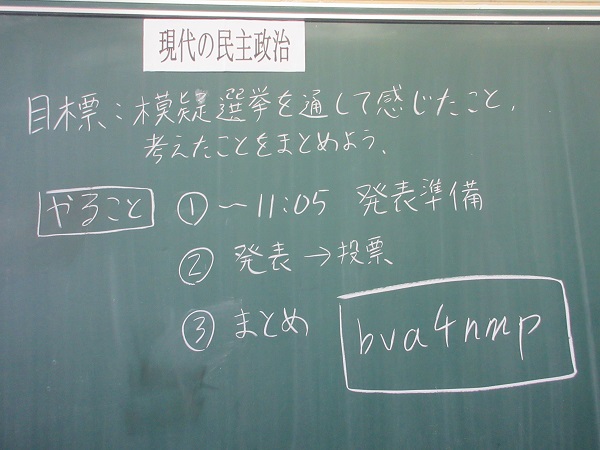 現代の民主政治
目標：模疑選挙を通して感じたこと、
考えたことをまとめよう。
やること ①～11:05 発表準備
② 発表→投票
③ まとめ
bva4nmp